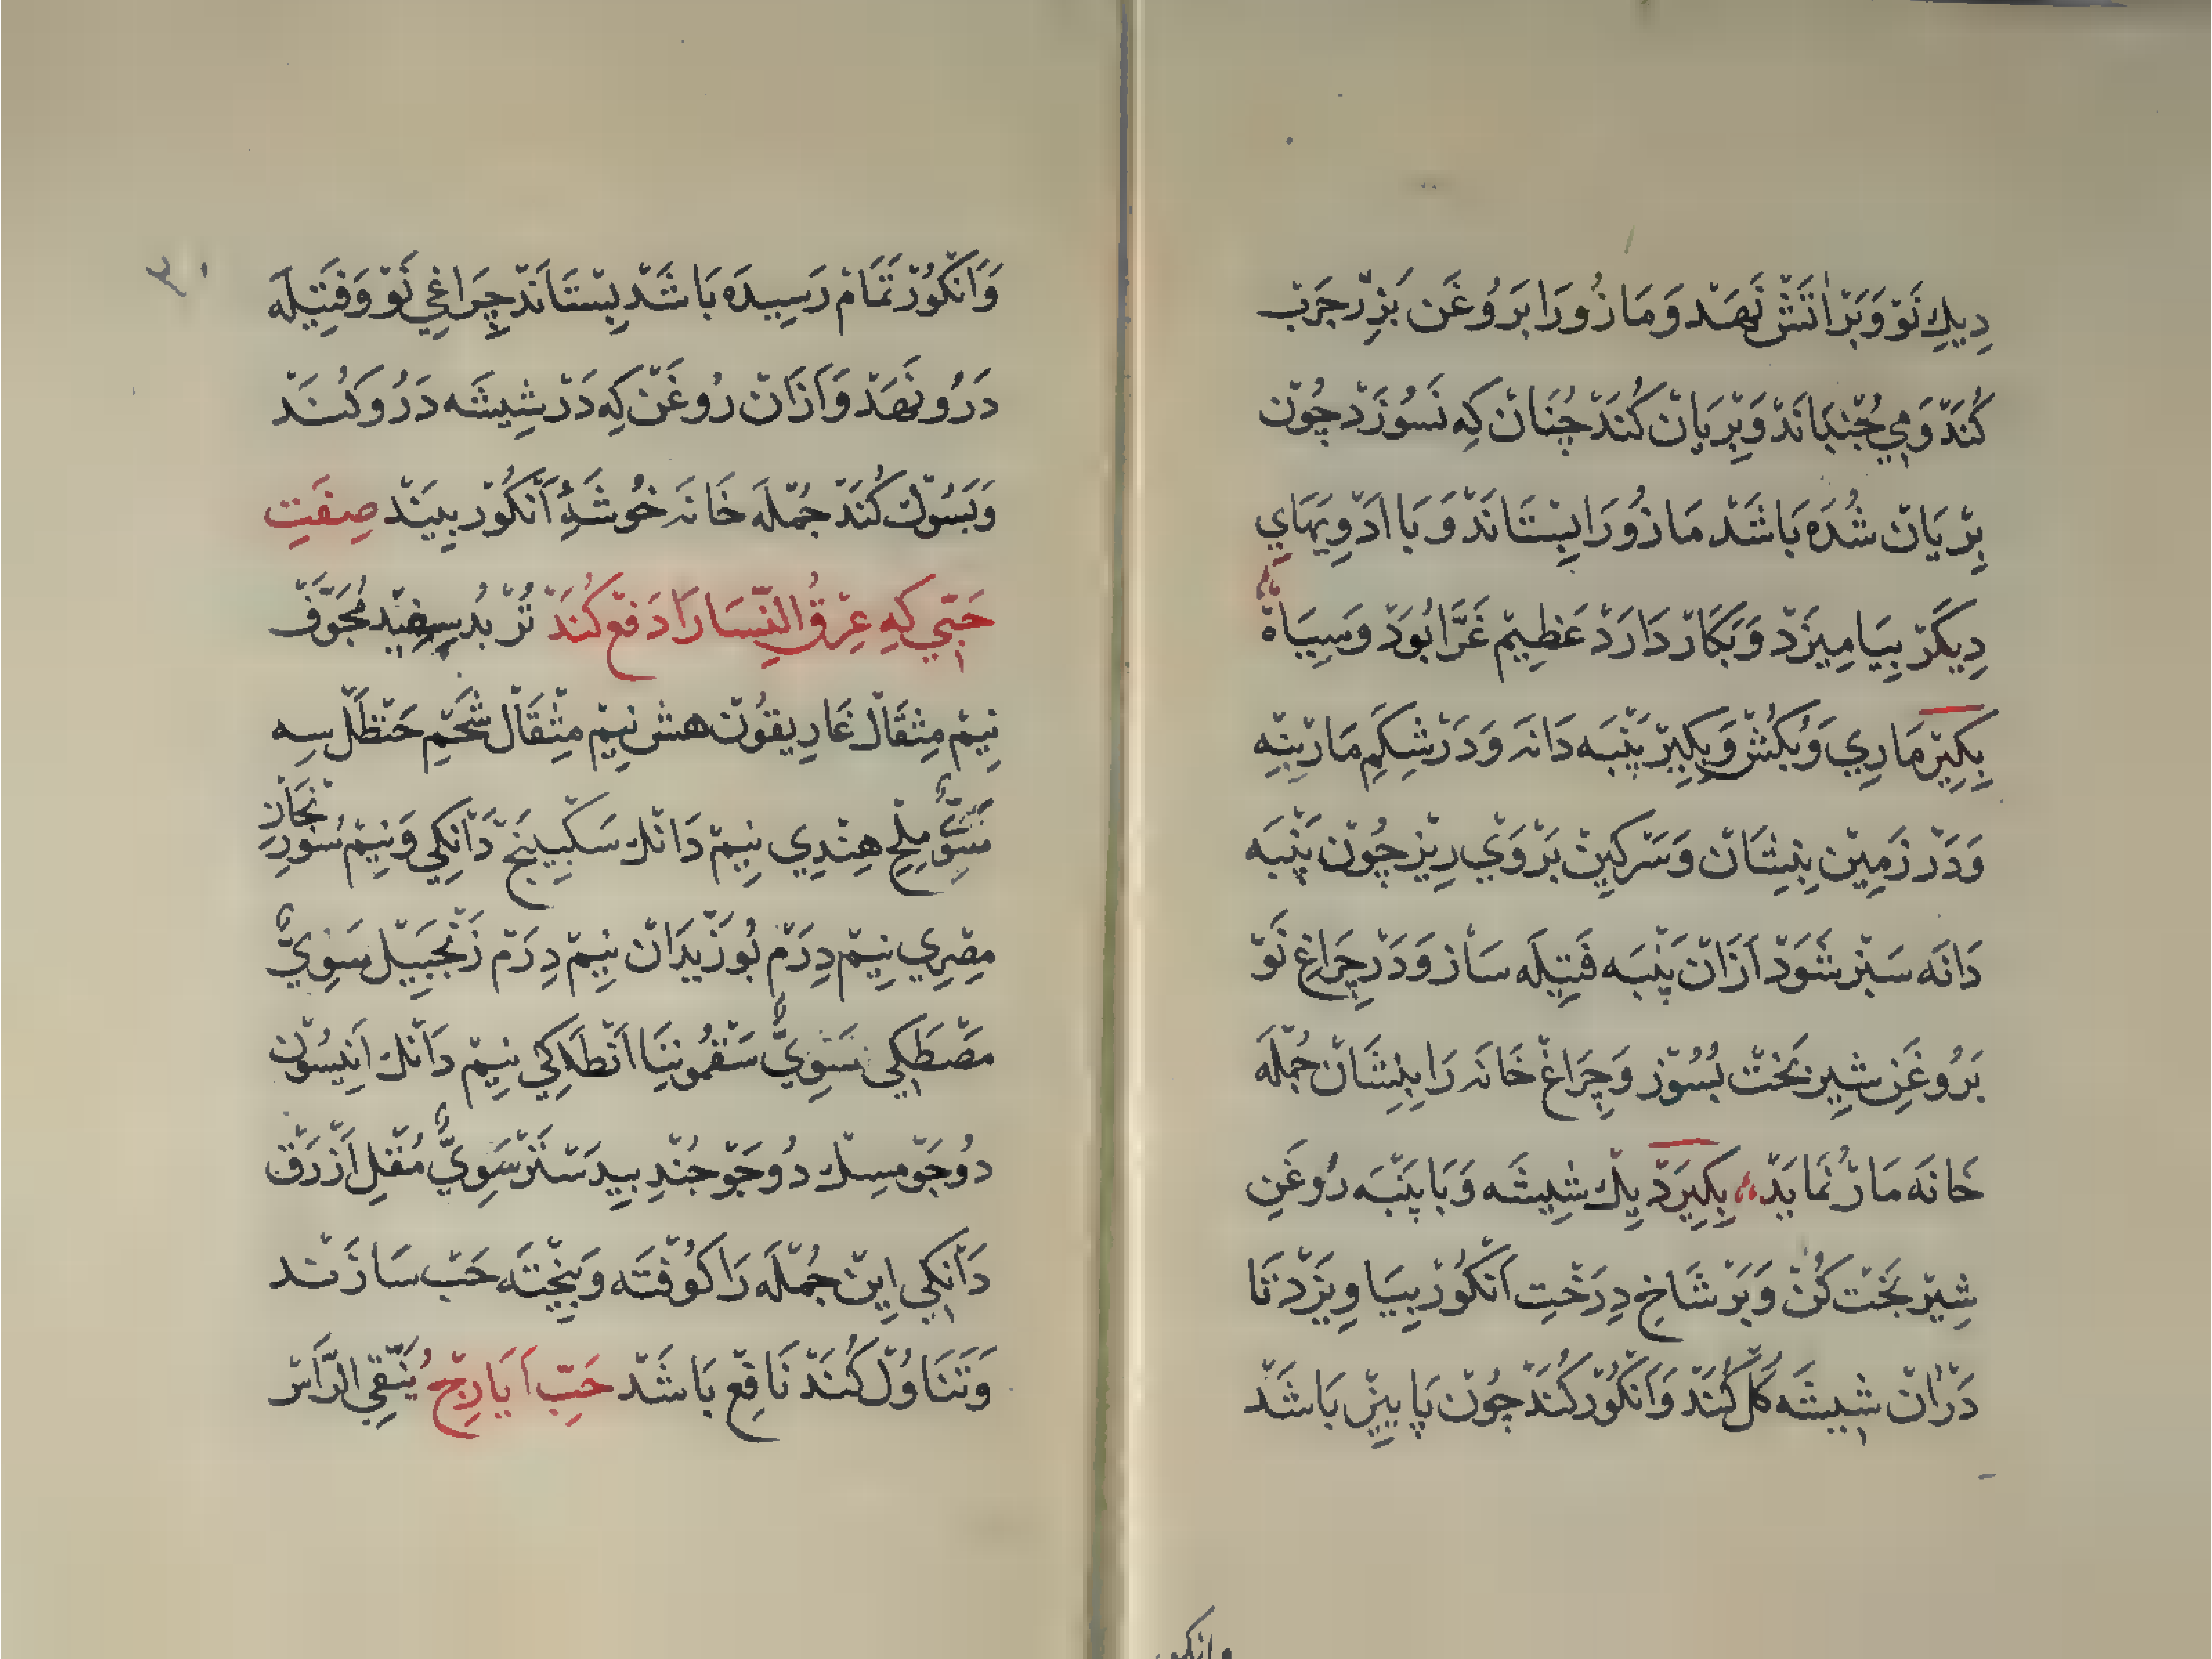 دِيكِ نَوْ وَبَرْ اٰتَشْ نَهَدْ وَمَازُورَا بَرُوغَن بَزِرْ جَرَبْ
كُنَدْ وَمِي جُنْبَانَدْ وَبِرْيَانْ كُنَدْ چُنَانْ كِه نَسُوزَدْ چُونْ
بِرْيَانْ شُدَه بَاشَدْ مَازُورَا بِسْتَانَدْ وَبَا اَدْوِيَهَايِ
دِيكَرْ بِيَامِيزَدْ وَبَكَارْ دَارَدْ عَظِيمْ غَرَّا بُوَدْ وَسِيَاهْ
بِكِيرْ مَارِي وَبُكُشْ وَبِكِيرْ پَنْبَه دَانَه وَدَرْ شِكَمِ مَارْ بِنِه
وَدَرْ زَمِينْ بِنِشَانْ وَسَرْكِينْ بَرْ وَيْ رِيزْ چُونْ پَنْبَه
دَانَه سَبْزْ شَوَدْ اَزَانْ پَنْبَه فَتِيلَه سَازْ وَدَرْ چِرَاغِ نَوْ
بَرُوغَنِ شِيرْ بَخْتْ بُسُوزْ وَچِرَاغْ خَانَه رَا بِنِشَانْ جُمْلَه
خَانَه مَارْ نُمَايَدْ بِكِيرَدْ يِكْ شِيشَه وَبَا پَنْبَه رُوغَنِ
شِيرْ بَخْتْ كُنْ وَبَرْ شَاخِ دِرَخْتِ اَنْكُورْ بِيَاوِيزَدْ تَا
دَرْ اٰنْ شِيشَه كُلْ كُنَدْ وَاَنْكُورْ كُنَدْ چُونْ پَايِيزْ بَاشَدْ
وانكور
٣٠
وَاَنْكُورْ تَمَامْ رَسِيدَه بَاشَدْ بِسْتَانَدْ چِرَاغِي نَوْ وَفَتِيلَه
دَرُو نَهَدْ وَاَزَانْ رُوغَنْ كِه دَرْ شِيشَه دَرُو كُنَدْ
وَبَسُوْكْ كُنَدْ جُمْلَه خَانَه خُوشَۀِ اَنْكُورْ بِينَدْ صِفَتِ
حَبِّي كِه عِرْقُ النِّسَارَا دَفْعْ كُنَدْ تُرْبُدِ سِفِيدِ مُجَوَّفْ
نِيمْ مِثْقَالْ غَارِيقُونْ هش نِيمْ مِثْقَالْ شَحْمِ حَنْظَلْ سِه
مِلْحِ هِنْدِي نِيمْ دَانْكْ سَكْبِينَجْ دَانْكِي وَنِيمْ سُورِنْجَانِ
مِصْرِي نِيمْ دِرَمْ بُوزْيدَانْ نِيمْ دِرَمْ زَنْجَبِيلْ سَوِيًّ
مَصْطَكِي سَوِيًّ سَقْمُونِيَا اَنْطَاكِي نِيمْ دَانْكْ اَنِيسُونْ
دُوجَوْ مِسْك دُوجَوْ جُنْدِ بِيدَسْتَرْ سَوِيًّ مُقْلِ اَزْرَقْ
دَانْكِي اِينْ جُمْلَه رَا كُوفْتَه وَبِخْتَه حَبْ سَازَنْد
وَتَنَاوُلْ كُنَدْ نَافِعْ بَاشَدْ حَبِّ اَيَارِجْ يُنَقِّي الرَّاسْ